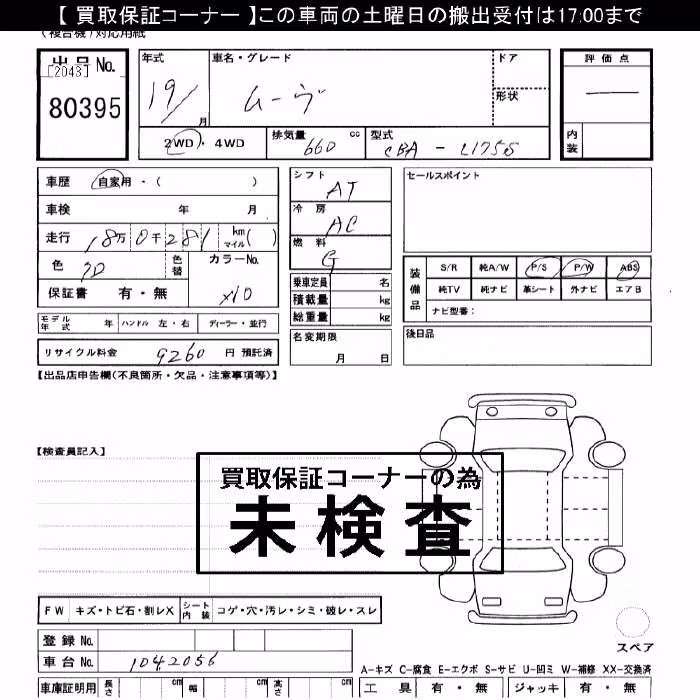 【 買取保証コーナー 】この車両の土曜日の搬出受付は17:00まで
(複合機)対応用紙
出品No.
[2043]
80395
年式
19/
月
車名・グレード
ムーヴ
ドア
形状
評価点
—
内装
2WD・4WD
排気量 660 cc
型式 CBA - L175S
車歴 自家用・( )
車検 年 月
走行 18万0千281 km マイル( )
色
色替
カラーNo. X10
保証書 有・無
シフト AT
冷房 AC
燃料 G
乗車定員 名
積載量 kg
総重量 kg
名変期限
月 日
セールスポイント
装備品
S/R 純A/W P/S P/W ABS
純TV 純ナビ 革シート 外ナビ エアB
ナビ型番：
後日品
モデル年式 年 ハンドル 左・右 ディーラー・並行
リサイクル料金 9260 円 預託済
【出品店申告欄(不良箇所・欠品・注意事項等)】
【検査員記入】
買取保証コーナーの為
未検査
FW キズ・トビ石・割レX シート内装 コゲ・穴・汚レ・シミ・破レ・スレ
スペア
登録No.
車台No. 1042056
A-キズ C-腐食 E-エクボ S-サビ U-凹ミ W-補修 XX-交換済
車庫証明用 長さ cm 幅 cm 高さ cm
工具 有・無 ジャッキ 有・無